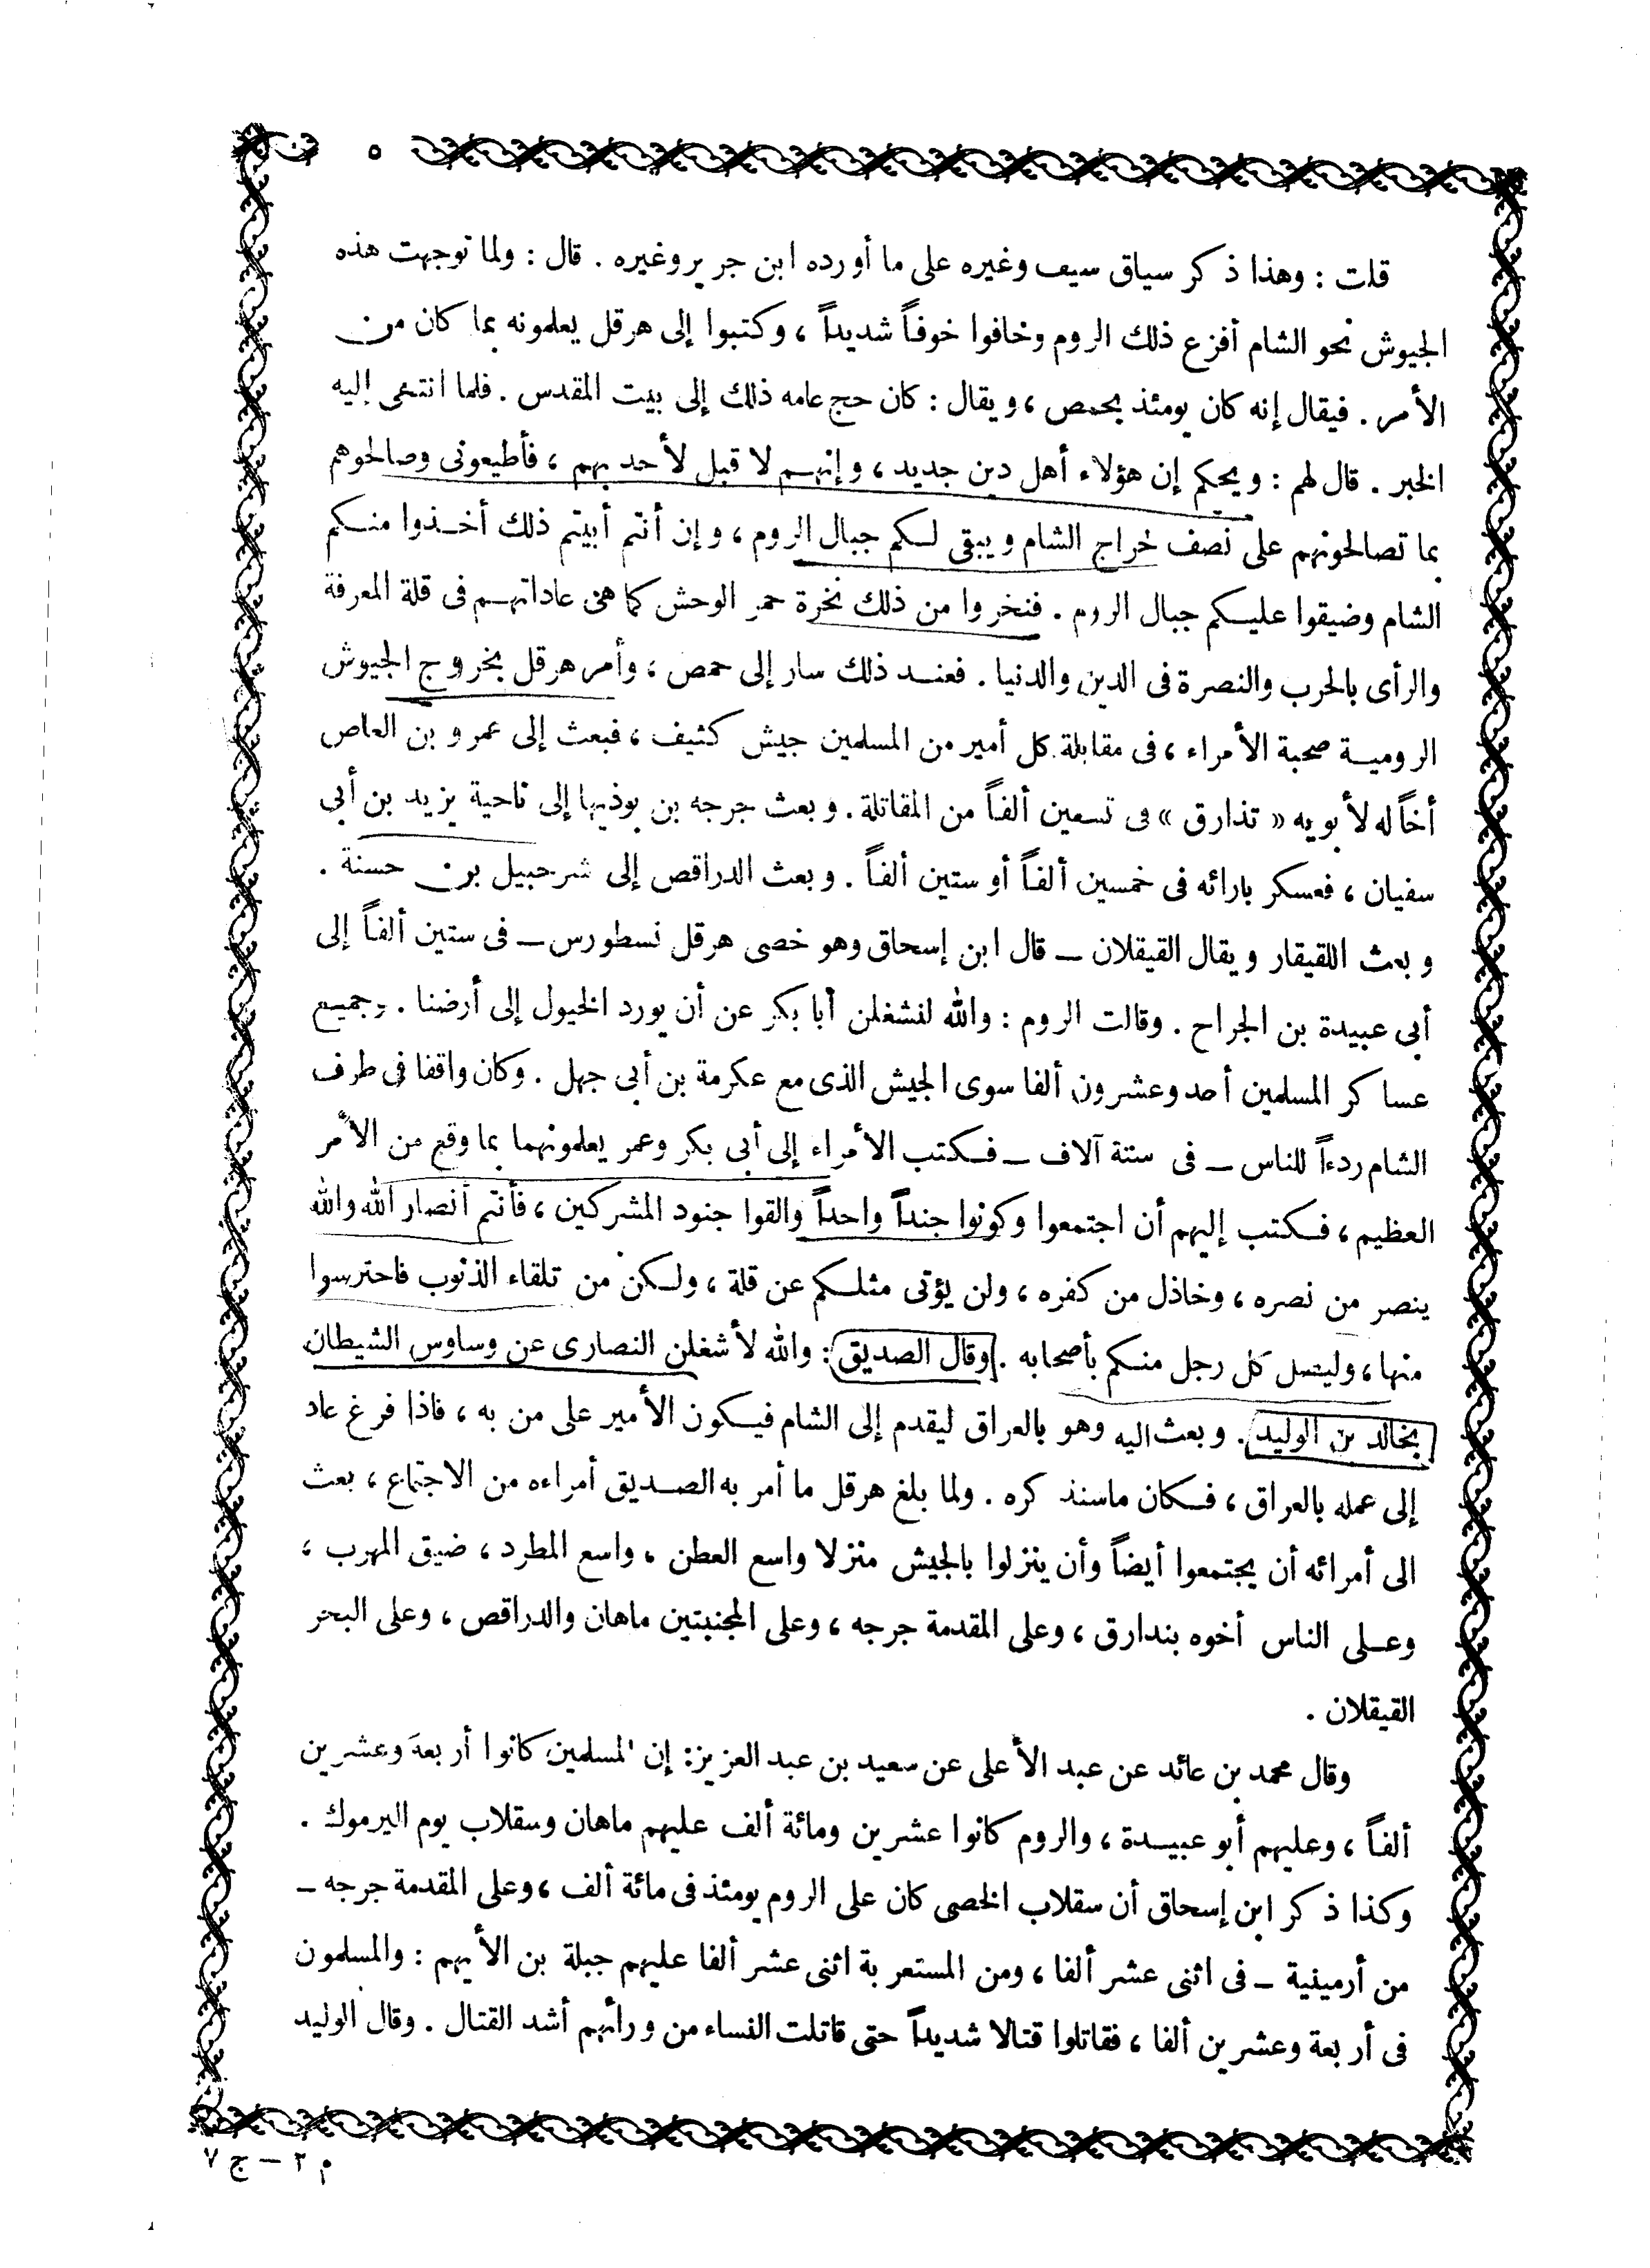 ٥
قلت : وهذا ذكر سياق سيف وغيره على ما أورده ابن جرير وغيره . قال : ولما توجهت هذه
الجيوش نحو الشام أفزع ذلك الروم وخافوا خوفاً شديداً ، وكتبوا إلى هرقل يعلمونه بما كان من
الأمر . فيقال إنه كان يومئذ بحمص ، ويقال : كان حج عامه ذلك إلى بيت المقدس . فلما انتهى إليه
الخبر . قال لهم : ويحكم إن هؤلاء أهل دين جديد ، وإنهم لا قبل لأحد بهم ، فأطيعونى وصالحوهم
بما تصالحونهم على نصف خراج الشام ويبقى لكم جبال الروم ، وإن أنتم أبيتم ذلك أخذوا منكم
الشام وضيقوا عليكم جبال الروم . فنخروا من ذلك نخرة حمر الوحش كما هى عاداتهم فى قلة المعرفة
والرأى بالحرب والنصرة فى الدين والدنيا . فعند ذلك سار إلى حمص ، وأمر هرقل بخروج الجيوش
الرومية صحبة الأمراء ، فى مقابلة كل أمير من المسلمين جيش كثيف ، فبعث إلى عمرو بن العاص
أخاً له لأبويه « تذارق » فى تسعين ألفاً من المقاتلة . وبعث جرجه بن بوذيها إلى ناحية يزيد بن أبى
سفيان ، فعسكر بازائه فى خمسين ألفاً أو ستين ألفاً . وبعث الدراقص إلى شرحبيل بن حسنة .
وبعث اللقيقار ويقال القيقلان – قال ابن إسحاق وهو خصى هرقل نسطورس – فى ستين ألفاً إلى
أبى عبيدة بن الجراح . وقالت الروم : والله لنشغلن أبا بكر عن أن يورد الخيول إلى أرضنا . وجميع
عساكر المسلمين أحد وعشرون ألفا سوى الجيش الذى مع عكرمة بن أبى جهل . وكان واقفا فى طرف
الشام ردءاً للناس – فى ستة آلاف – فكتب الأمراء إلى أبى بكر وعمر يعلمونهما بما وقع من الأمر
العظيم ، فكتب إليهم أن اجتمعوا وكونوا جنداً واحداً والقوا جنود المشركين ، فأنتم أنصار الله والله
ينصر من نصره ، وخاذل من كفره ، ولن يؤتى مثلكم عن قلة ، ولكن من تلقاء الذنوب فاحترسوا
منها ، وليتصل كل رجل منكم بأصحابه . وقال الصديق : والله لأشغلن النصارى عن وساوس الشيطان
بخالد بن الوليد . وبعث اليه وهو بالعراق ليقدم إلى الشام فيكون الأمير على من به ، فاذا فرغ عاد
إلى عمله بالعراق ، فكان ماسنذكره . ولما بلغ هرقل ما أمر به الصديق أمراءه من الاجتماع ، بعث
الى أمرائه أن يجتمعوا أيضاً وأن ينزلوا بالجيش منزلا واسع العطن ، واسع المطرد ، ضيق المهرب ،
وعلى الناس أخوه بندارق ، وعلى المقدمة جرجه ، وعلى المجنبتين ماهان والدراقص ، وعلى البحر
القيقلان .
وقال محمد بن عائد عن عبد الأعلى عن سعيد بن عبد العزيز : إن المسلمين كانوا أربعة وعشرين
ألفاً ، وعليهم أبو عبيدة ، والروم كانوا عشرين ومائة ألف عليهم ماهان وسقلاب يوم اليرموك .
وكذا ذكر ابن إسحاق أن سقلاب الخصى كان على الروم يومئذ فى مائة ألف ، وعلى المقدمة جرجه –
من أرمينية – فى اثنى عشر ألفا ، ومن المستعربة اثنى عشر ألفا عليهم جبلة بن الأيهم : والمسلمون
فى أربعة وعشرين ألفا ، فقاتلوا قتالا شديداً حتى قاتلت النساء من ورائهم أشد القتال . وقال الوليد
م ٢ – ج ٧